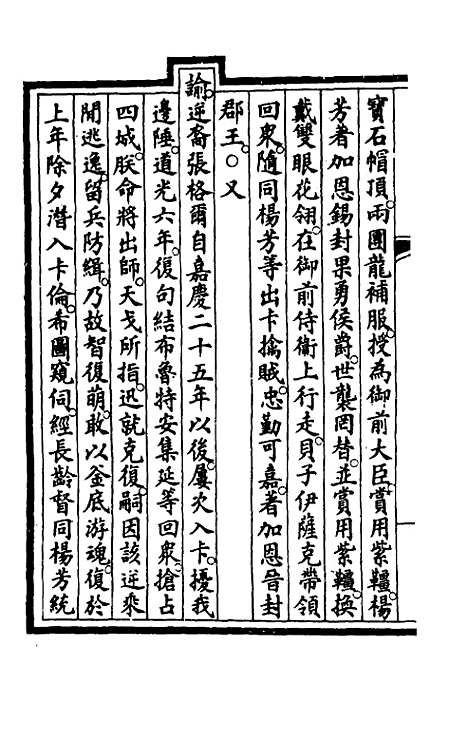 寶石帽頂。兩團龍補服。授為御前大臣。賞用紫韁。楊
芳著加恩錫封果勇侯爵。世襲罔替。並賞用紫韁。換
戴雙眼花翎。在御前侍衛上行走。貝子伊薩克帶領
回衆。隨同楊芳等出卡擒賊。忠勤可嘉。著加恩晉封
郡王。○又
諭逆裔張格爾自嘉慶二十五年以後。屢次入卡。擾我
邊陲。道光六年。復句結布魯特安集延等回衆。搶占
四城。朕命將出師。天戈所指。迅就克復。嗣因該逆乘
閒逃逸。留兵防緝。乃故智復萌。敢以釜底游魂。復於
上年除夕潛入卡倫。希圖窺伺。經長齡督同楊芳統